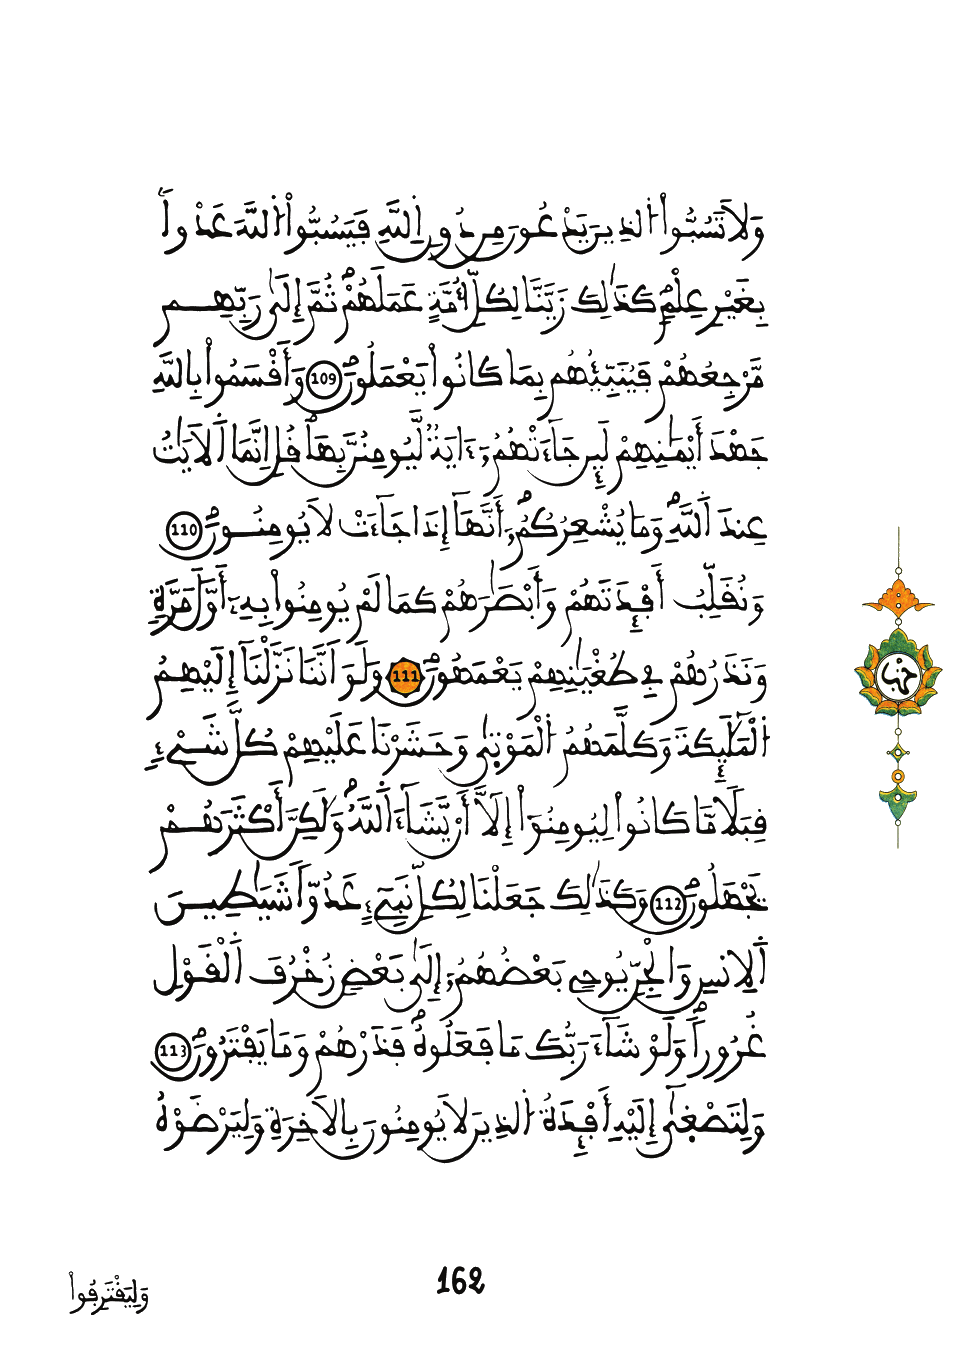 وَلَا تَسُبُّوا۟ الذِينَ يَدْعُونَ مِن دُونِ اِ۬للَّهِ فَيَسُبُّوا۟ اُ۬للَّهَ عَدْواَۢ
بِغَيْرِ عِلْمٍۖ كَذَٰلِكَ زَيَّنَّا لِكُلِّ أُمَّةٍ عَمَلَهُمْۖ ثُمَّ إِلَىٰ رَبِّهِم
مَّرْجِعُهُمْ فَيُنَبِّئُهُم بِمَا كَانُوا۟ يَعْمَلُونَۖ 109 وَأَقْسَمُوا۟ بِاللَّهِ
جَهْدَ أَيْمَٰنِهِمْ لَئِن جَآءَتْهُمُۥٓ ءَايَةٞ لَّيُومِنُنَّ بِهَاۖ قُلِ اِنَّمَا اَ۬لَايَٰتُ
عِندَ اَ۬للَّهِۖ وَمَا يُشْعِرُكُمُۥٓ أَنَّهَآ إِذَا جَآءَتْ لَا يُومِنُونَۖ 110
وَنُقَلِّبُ أَفْـِٕدَتَهُمْ وَأَبْصَٰرَهُمْ كَمَا لَمْ يُومِنُوا۟ بِهِۦٓ أَوَّلَ مَرَّةٖ
وَنَذَرُهُمْ فِے طُغْيَٰنِهِمْ يَعْمَهُونَۖ 111 وَلَوَ اَنَّنَا نَزَّلْنَآ إِلَيْهِمُ
اُ۬لْمَلَٰٓئِكَةَ وَكَلَّمَهُمُ اُ۬لْمَوْتَىٰ وَحَشَرْنَا عَلَيْهِمْ كُلَّ شَےْءٖ
قِبَلاٗ مَّا كَانُوا۟ لِيُومِنُوٓا۟ إِلَّآ أَنْ يَّشَآءَ اَ۬للَّهُۖ وَلَٰكِنَّ أَكْثَرَهُمْ
يَجْهَلُونَۖ 112 وَكَذَٰلِكَ جَعَلْنَا لِكُلِّ نَبِےٓءٍ عَدُوّاٗ شَيَٰطِينَ
اَ۬لِانسِ وَالْجِنِّ يُوحِے بَعْضُهُمُۥٓ إِلَىٰ بَعْضٖ زُخْرُفَ اَ۬لْقَوْلِ
غُرُوراٗۖ وَلَوْ شَآءَ رَبُّكَ مَا فَعَلُوهُۖ فَذَرْهُمْ وَمَا يَفْتَرُونَۖ 113
وَلِتَصْغَىٰٓ إِلَيْهِ أَفْـِٕدَةُ اُ۬لذِينَ لَا يُومِنُونَ بِالَاخِرَةِ وَلِيَرْضَوْهُ
حزب
162
وَلِيَقْتَرِفُوا۟